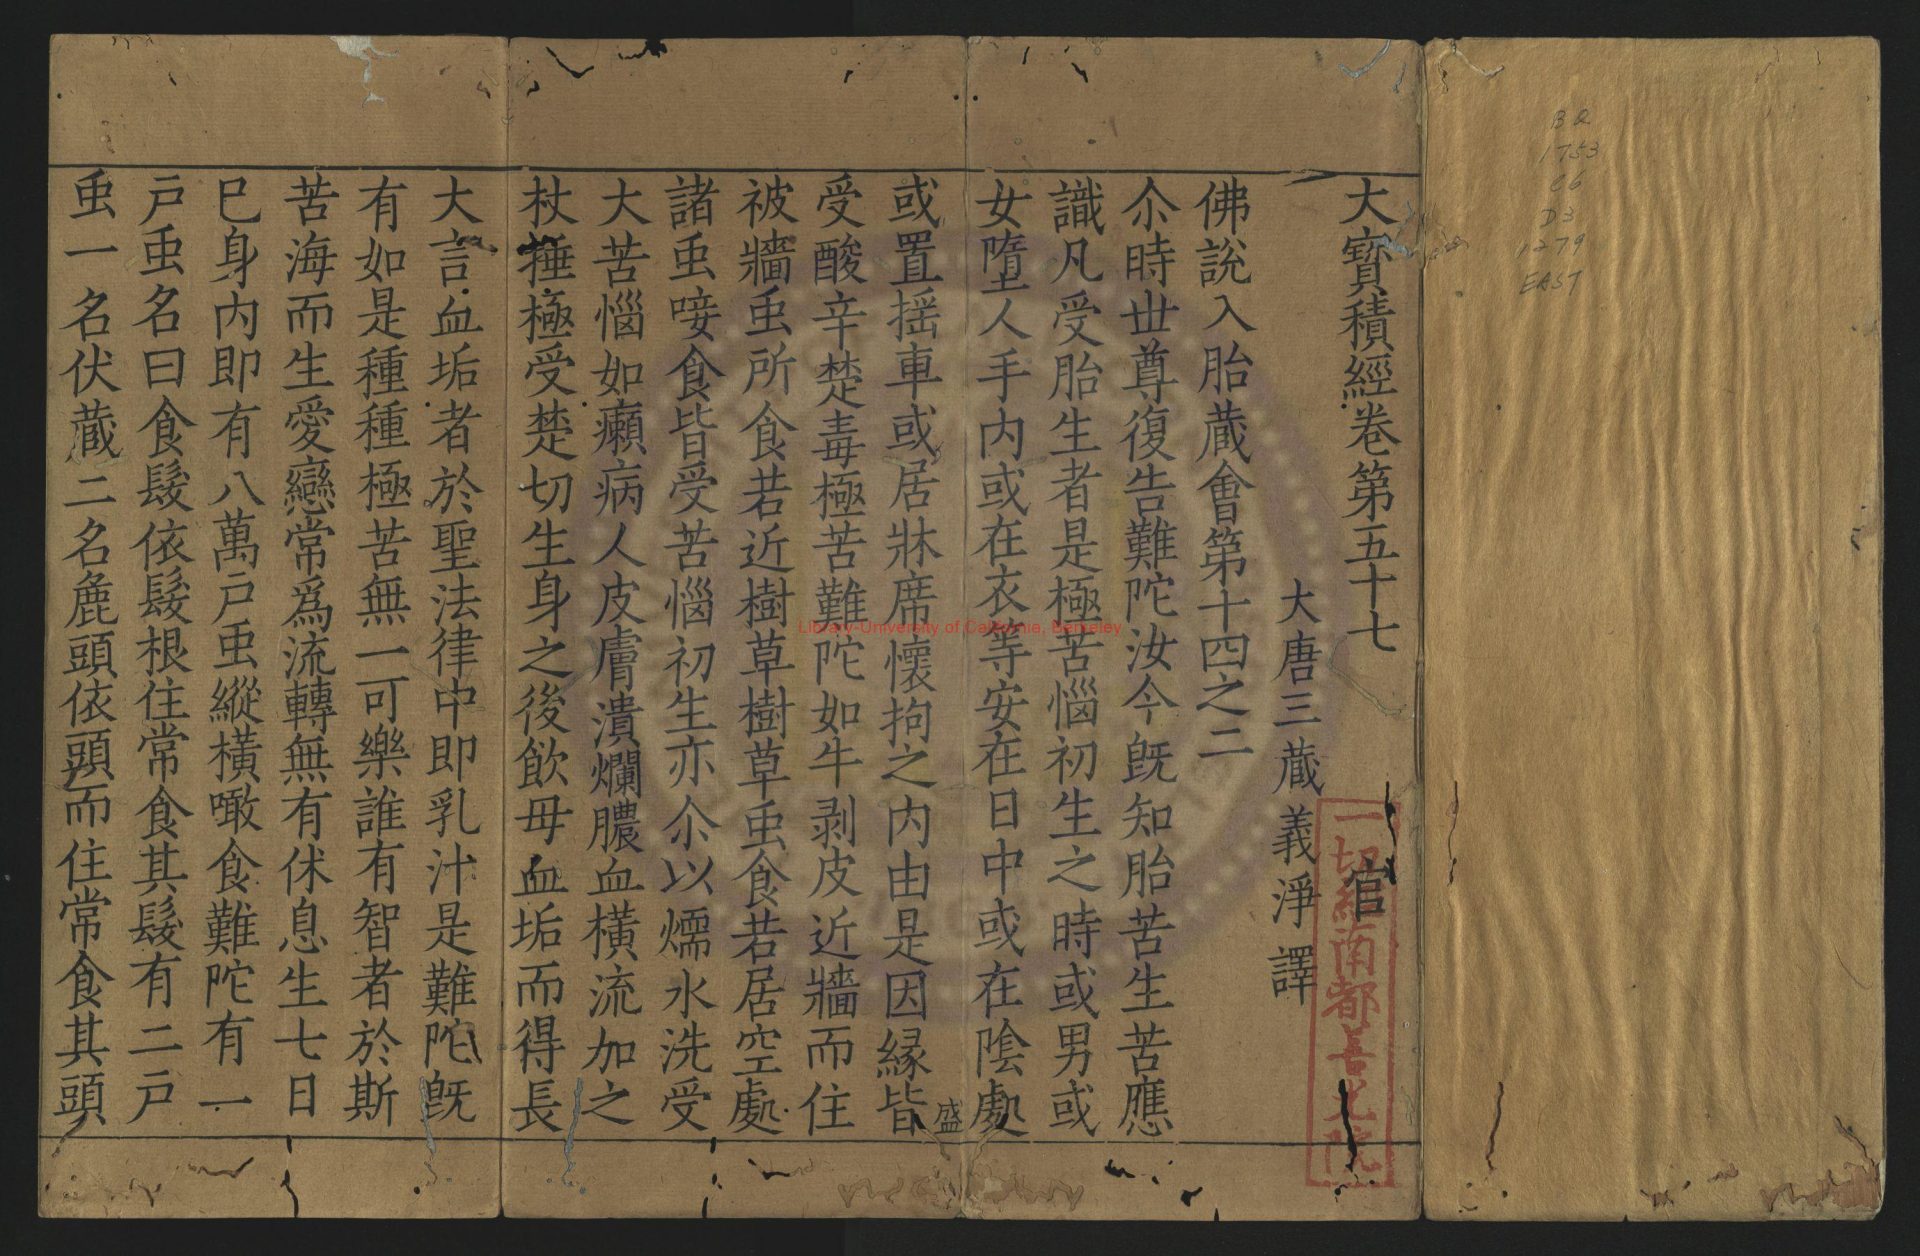 BQ
1753
C6
D3
1279
EAST
大寶積經卷第五十七
官
一切經南都善光院
大唐三藏義淨譯
佛說入胎藏會第十四之二
尒時世尊復告難陀汝今旣知胎苦生苦應
識凡受胎生者是極苦惱初生之時或男或
女墮人手內或在衣等安在日中或在陰處
盛
或置搖車或居牀席懷拘之內由是因緣皆
受酸辛楚毒極苦難陀如牛剥皮近牆而住
被牆䖝所食若近樹草樹草䖝食若居空處
諸䖝唼食皆受苦惱初生亦尒以煗水洗受
大苦惱如癩病人皮膚潰爛膿血橫流加之
杖捶極受楚切生身之後飲母血垢而得長
大言血垢者於聖法律中即乳汁是難陀旣
有如是種種極苦無一可樂誰有智者於斯
苦海而生愛戀常爲流轉無有休息生七日
巳身內即有八萬戶䖝縱橫噉食難陀有一
戶䖝名曰食髮依髮根住常食其髮有二戶
䖝一名伏藏二名麁頭依頭而住常食其頭
Library-University of California, Berkeley